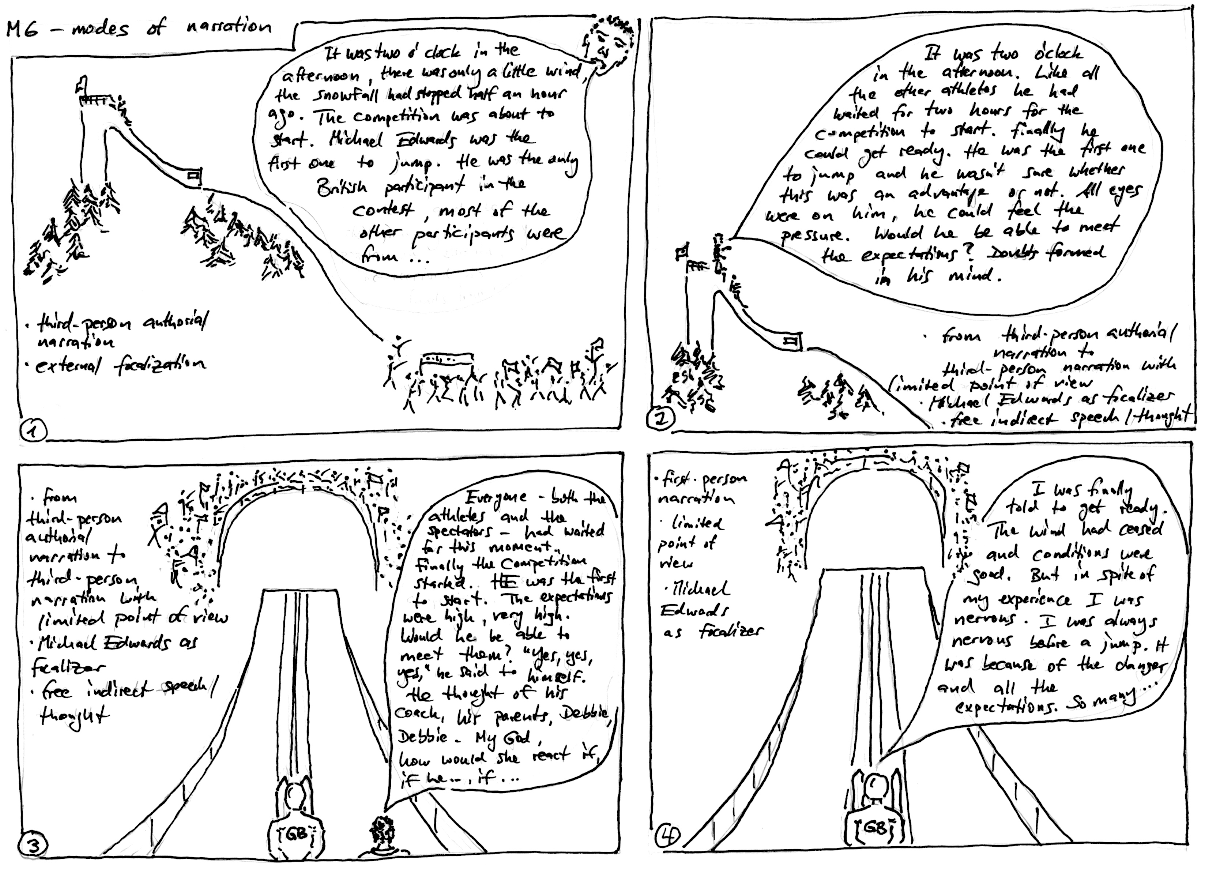 M6 - modes of narration
It was two o'clock in the
afternoon, there was only a little wind,
the snowfall had stopped half an hour
ago. The competition was about to
start. Michael Edwards was the
first one to jump. He was the only
British participant in the
contest, most of the
other participants were
from ...
· third-person authorial
narration
· external focalization
1
It was two o'clock
in the afternoon. Like all
the other athletes he had
waited for two hours for the
competition to start. Finally he
could get ready. He was the first one
to jump and he wasn't sure whether
this was an advantage or not. All eyes
were on him, he could feel the
pressure. Would he be able to meet
the expectations? Doubts formed
in his mind.
· from third-person authorial
narration to
third-person narration with
limited point of view
· Michael Edwards as focalizer
· free indirect speech/thought
2
· from
third-person
authorial
narration to
third-person
narration with
limited point of view
· Michael Edwards as
focalizer
· free indirect speech/
thought
Everyone - both the
athletes and the
spectators - had waited
for this moment.
Finally the competition
started. HE was the first
to start. The expectations
were high, very high.
Would he be able to
meet them? "Yes, yes,
yes," he said to himself.
He thought of his
coach, his parents, Debbie,
Debbie - My God,
how would she react if,
if he ..., if ...
GB
3
· first-person
narration
· limited
point of
view
· Michael
Edwards
as focalizer
I was finally
told to get ready.
The wind had ceased
and conditions were
good. But in spite of
my experience I was
nervous. I was always
nervous before a jump. It
was because of the danger
and all the
expectations. So many ...
GB
4